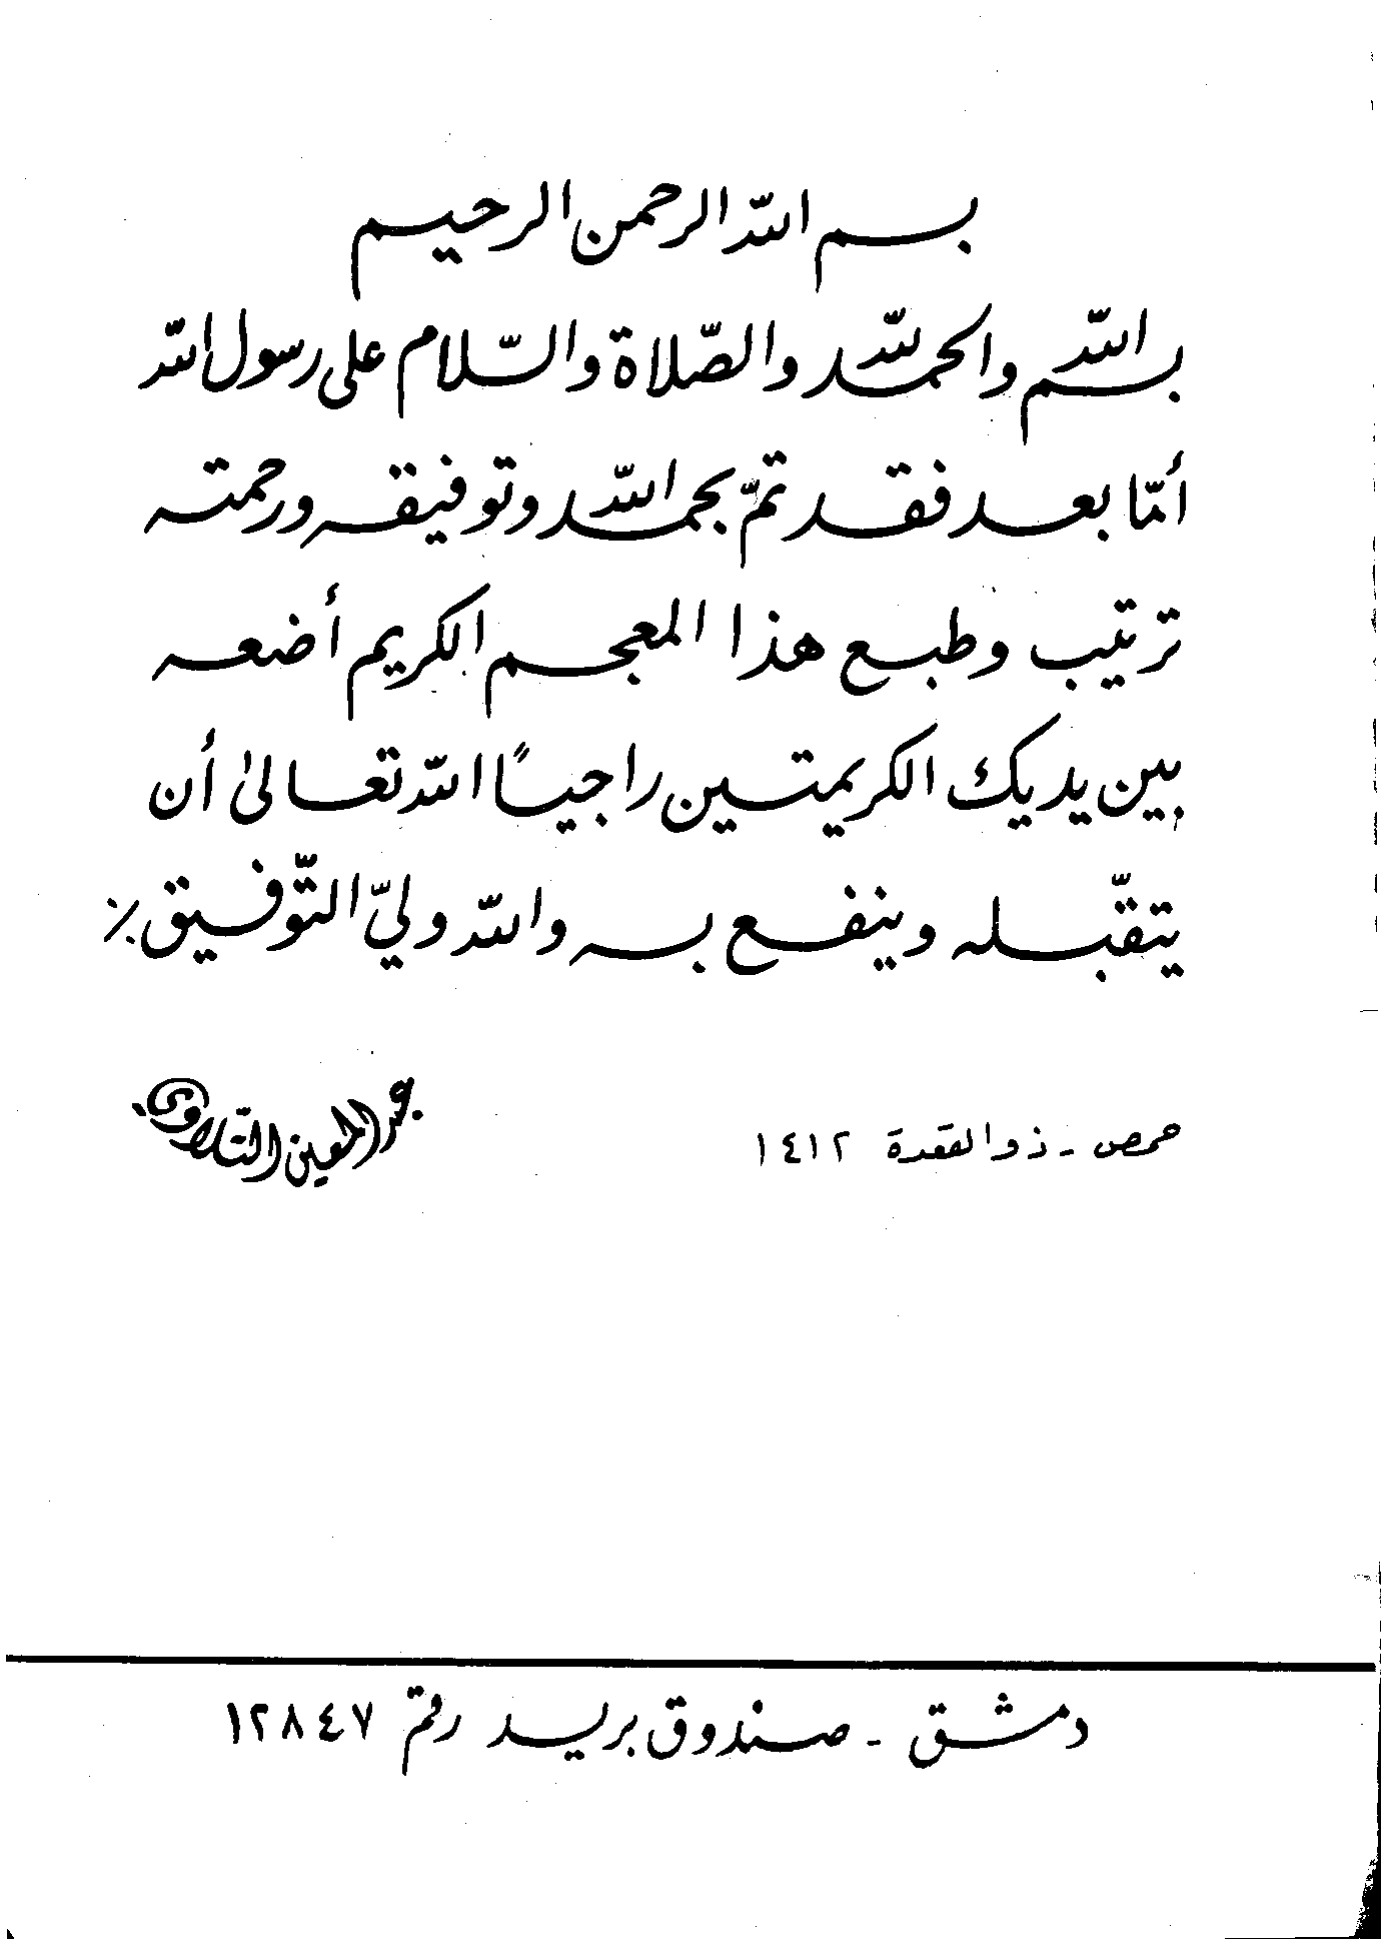 بسم الله الرحمن الرحيم
بسم الله والحمد لله والصّلاة والسّلام على رسول الله
أمّا بعد فقد تمّ بحمد الله وتوفيقه ورحمته
ترتيب وطبع هذا المعجم الكريم أضعه
بين يديك الكريمتين راجياً الله تعالىٰ أن
يتقبّله وينفع به والله وليّ التّوفيق ٪
حمص - ذو القعدة ١٤١٢
عبد المعين التّلاوي
دمشق - صندوق بريد رقم ١٢٨٤٧